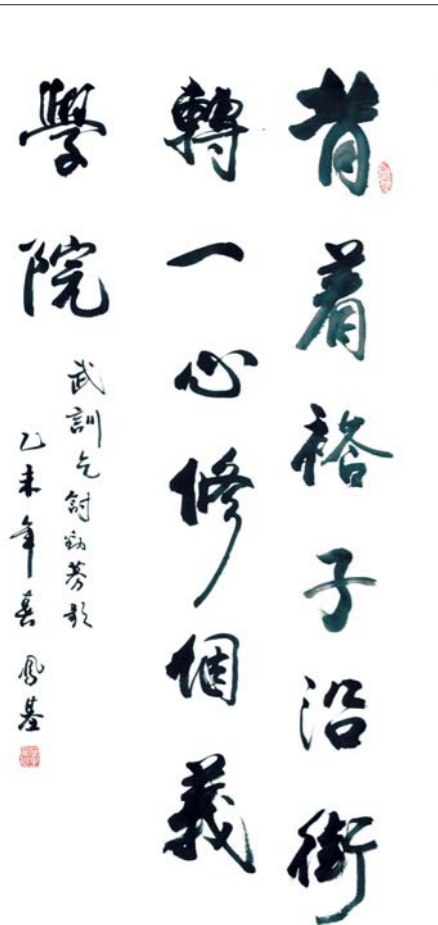 背着褡子沿街
轉一心修個義
學院
武訓乞討勸募歌
乙未年 鳳基